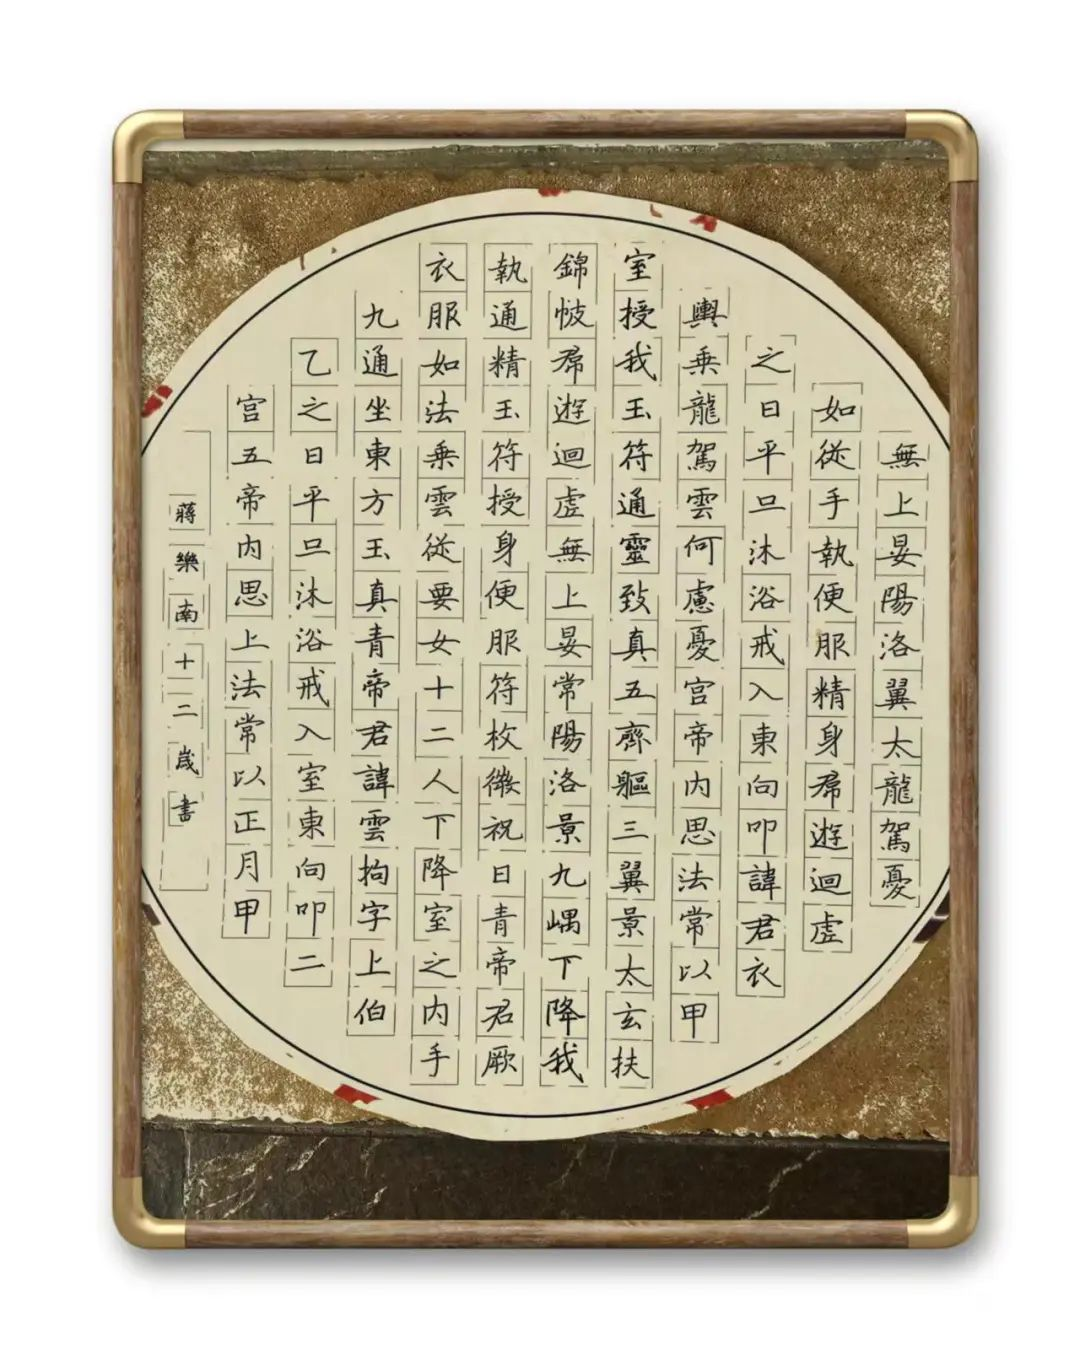 無上晏陽洛翼太龍駕憂
如從手執便服精身席遊迴虛
之日平旦沐浴戒入東向叩諱君衣
輿乗龍駕雲何慮憂宮帝内思法常以甲
室授我玉符通靈致真五齊軀三翼景太玄扶
錦帔席遊迴虛無上晏常陽洛景九嵎下降我
執通精玉符授身便服符枚微祝日青帝君厥
衣服如法乗雲從要女十二人下降室之内手
九通坐東方玉真青帝君諱雲拘字上伯
乙之日平旦沐浴戒入室東向叩二
宮五帝内思上法常以正月甲
蔣樂南十二歲書